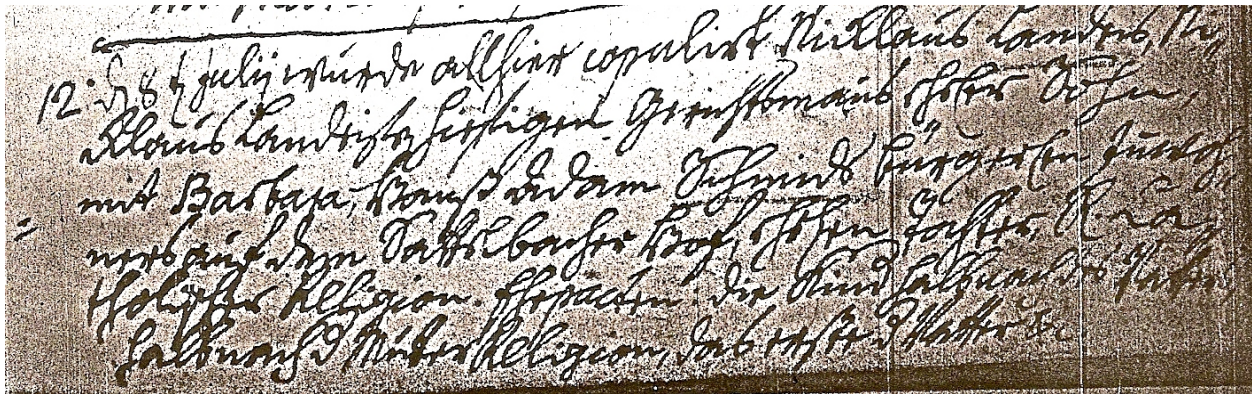 12. d 8 t Julij wurde allhier copulirt Nicklaus Landes, Ni,
klaus Landes hiesigen Gerichtsmans ehel. Sohn,
mit Barbara, Hanß Adam Schmids Bürgers Inwoh,
ners auf dem Sattelbacher Hof, ehel. Tochter, R. Ca,
tholischer Religion. Ehepacten: die Kind halb nach d Vater
halb nach d Mutter Religion, das erste d Vatter